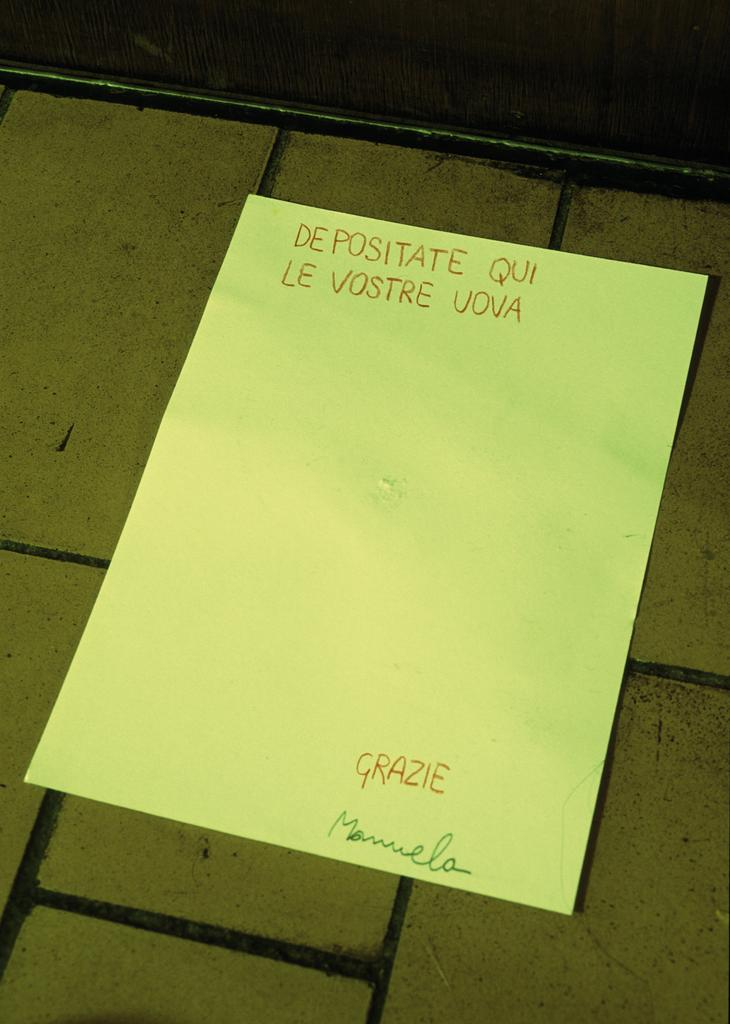 DEPOSITATE QUI
LE VOSTRE UOVA
GRAZIE
Manuela